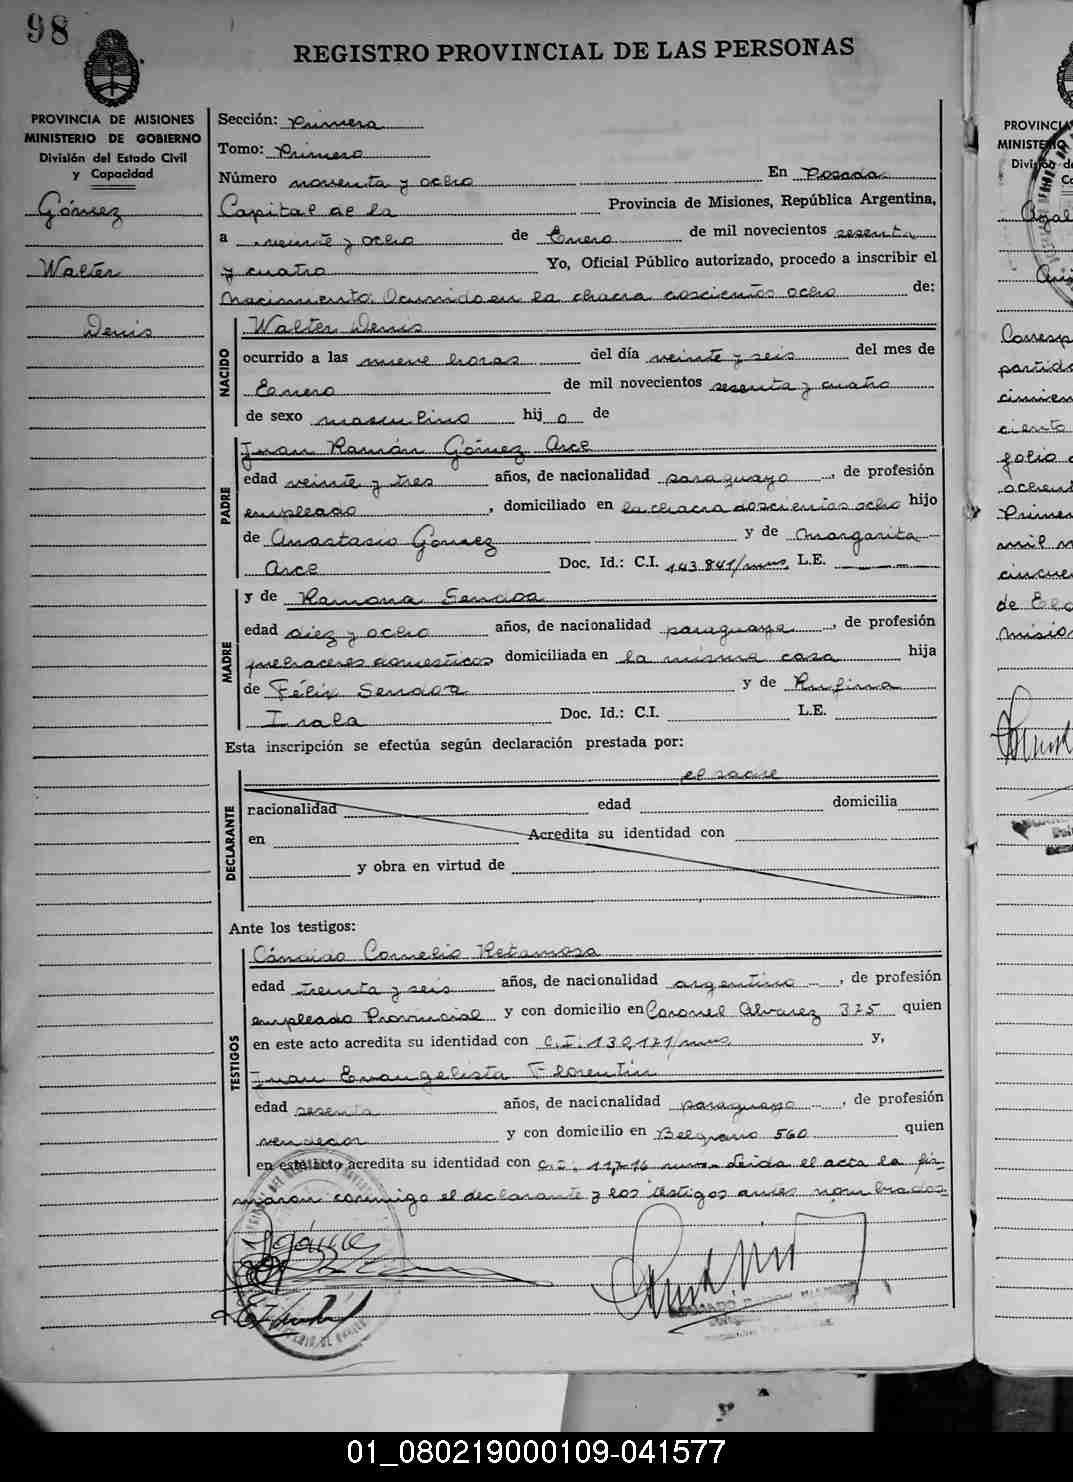 98
REGISTRO PROVINCIAL DE LAS PERSONAS
PROVINCIA DE MISIONES
MINISTERIO DE GOBIERNO
División del Estado Civil
y Capacidad
Gómez
Walter
Denis
Sección: Primera
Tomo: Primero
Número noventa y ocho En Posadas
Capital de la Provincia de Misiones, República Argentina,
a veinte y ocho de Enero de mil novecientos sesenta
y cuatro Yo, Oficial Público autorizado, procedo a inscribir el
nacimiento. Ocurrido en la chacra doscientos ocho de:
NACIDO
Walter Denis
ocurrido a las nueve horas del día veinte y seis del mes de
Enero de mil novecientos sesenta y cuatro
de sexo masculino hijo de
PADRE
Juan Ramón Gómez Arce
edad veinte y tres años, de nacionalidad paraguayo, de profesión
empleado, domiciliado en la chacra doscientos ocho hijo
de Anastasio Gómez y de Margarita
Arce Doc. Id.: C.I. 143.841/mnes L.E.
MADRE
y de Ramona Sendoa
edad diez y ocho años, de nacionalidad paraguaya, de profesión
quehaceres domesticos domiciliada en la misma casa hija
de Félix Sendoa y de Rufina
Irala Doc. Id.: C.I. L.E.
Esta inscripción se efectúa según declaración prestada por:
DECLARANTE
el padre
nacionalidad edad domicilia
en Acredita su identidad con
y obra en virtud de
Ante los testigos:
TESTIGOS
Cándido Cornelio Retamosa
edad treinta y seis años, de nacionalidad argentino, de profesión
empleado Provincial y con domicilio en Coronel Alvarez 375 quien
en este acto acredita su identidad con C.I. 130,171/mnes y,
Juan Evangelista Florentín
edad sesenta años, de nacionalidad paraguayo, de profesión
vendedor y con domicilio en Belgrano 560 quien
en este acto acredita su identidad con C.I. Leida el acta la fir-
maron conmigo el declarante y los testigos antes nombrados.
PROVINCIA
MINISTERIO
Corresp
partida
ciento
folio
Primer
mil n
de
01_080219000109-041577